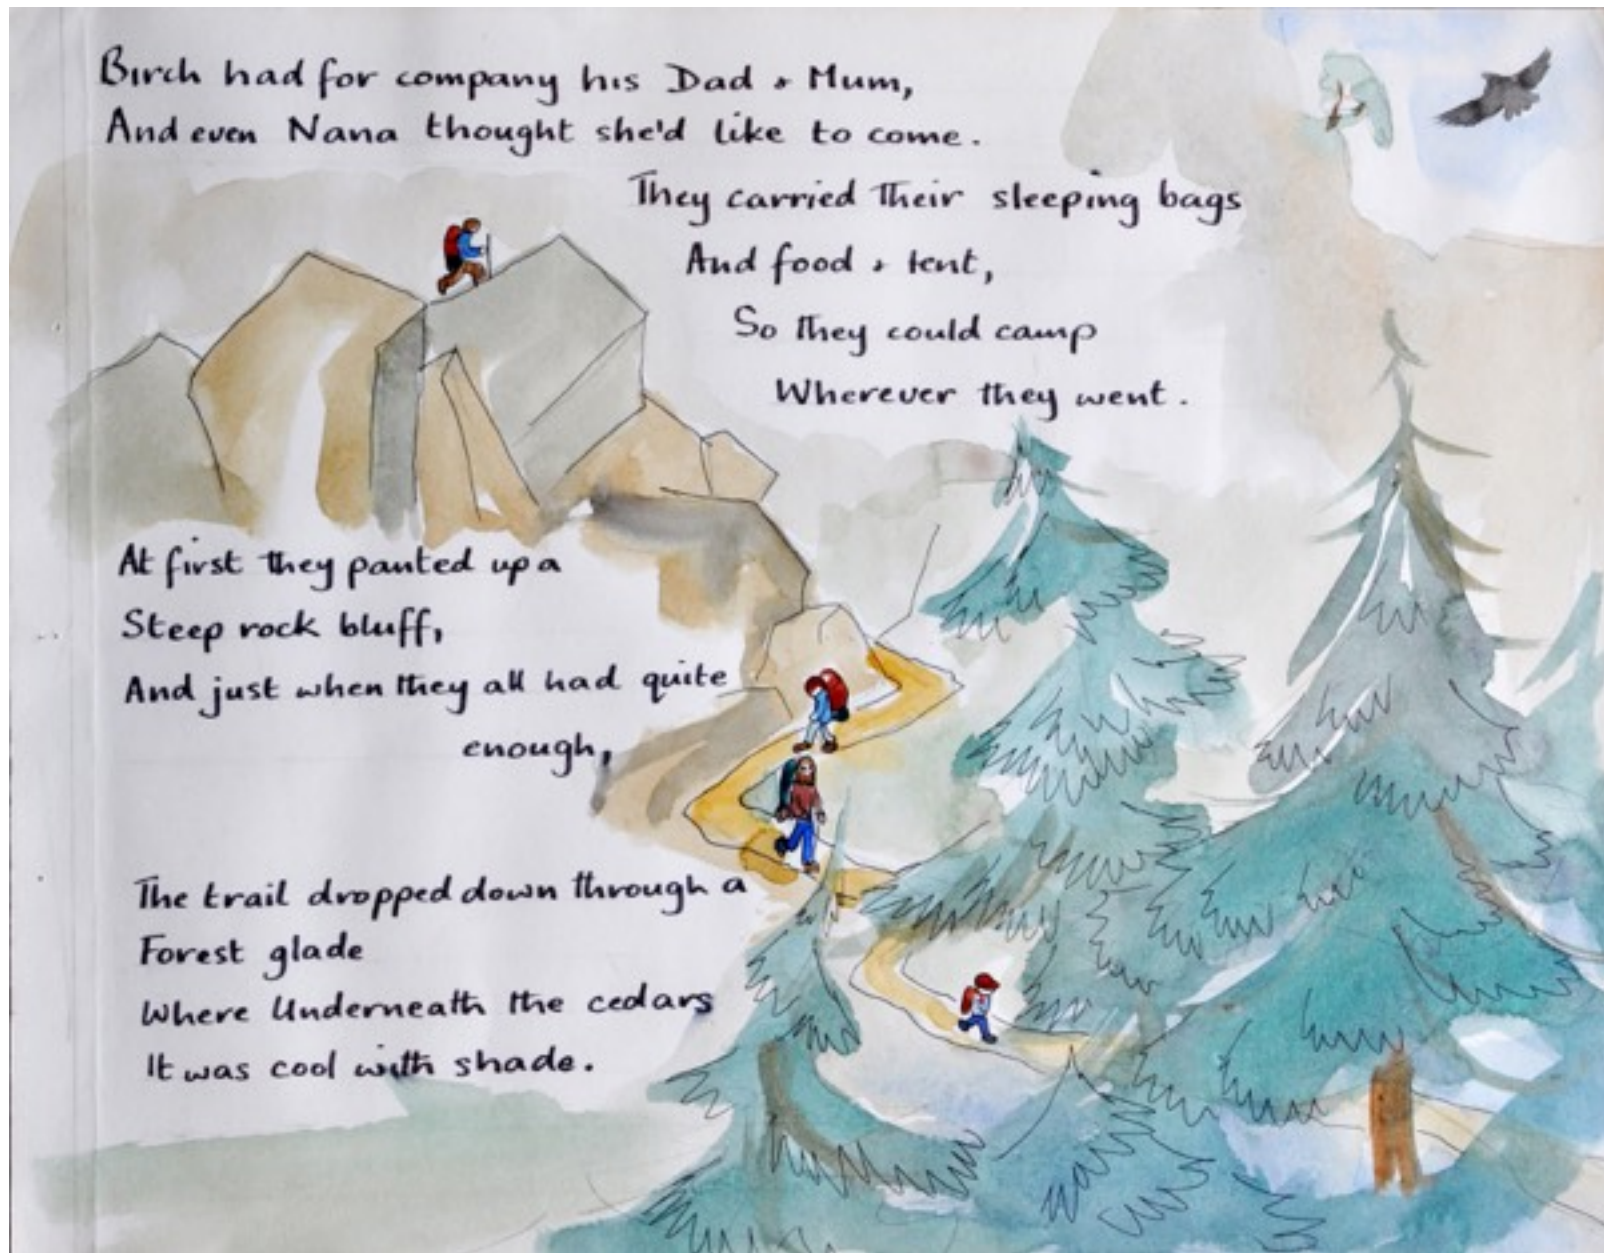 Birch had for company his Dad & Mum,
And even Nana thought she'd like to come.
They carried their sleeping bags
And food & tent,
So they could camp
Wherever they went.
At first they panted up a
Steep rock bluff,
And just when they all had quite
enough,
The trail dropped down through a
Forest glade
Where Underneath the cedars
It was cool with shade.